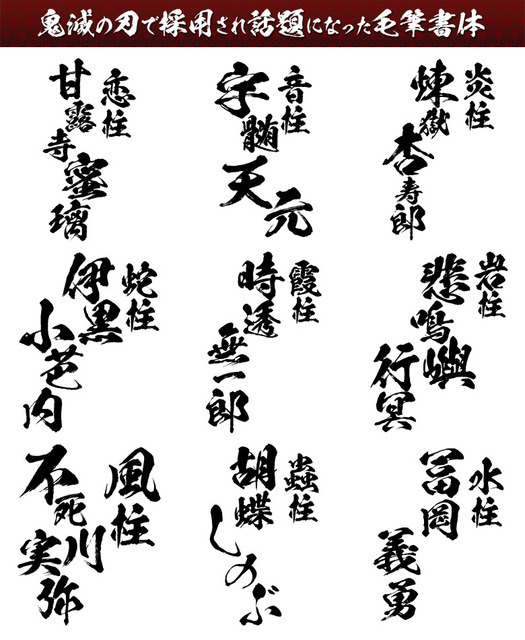 鬼滅の刃で採用され話題になった毛筆書体
炎柱
煉獄杏寿郎
音柱
宇髄天元
恋柱
甘露寺蜜璃
岩柱
悲鳴嶼行冥
霞柱
時透無一郎
蛇柱
伊黒小芭内
水柱
冨岡義勇
蟲柱
胡蝶しのぶ
風柱
不死川実弥